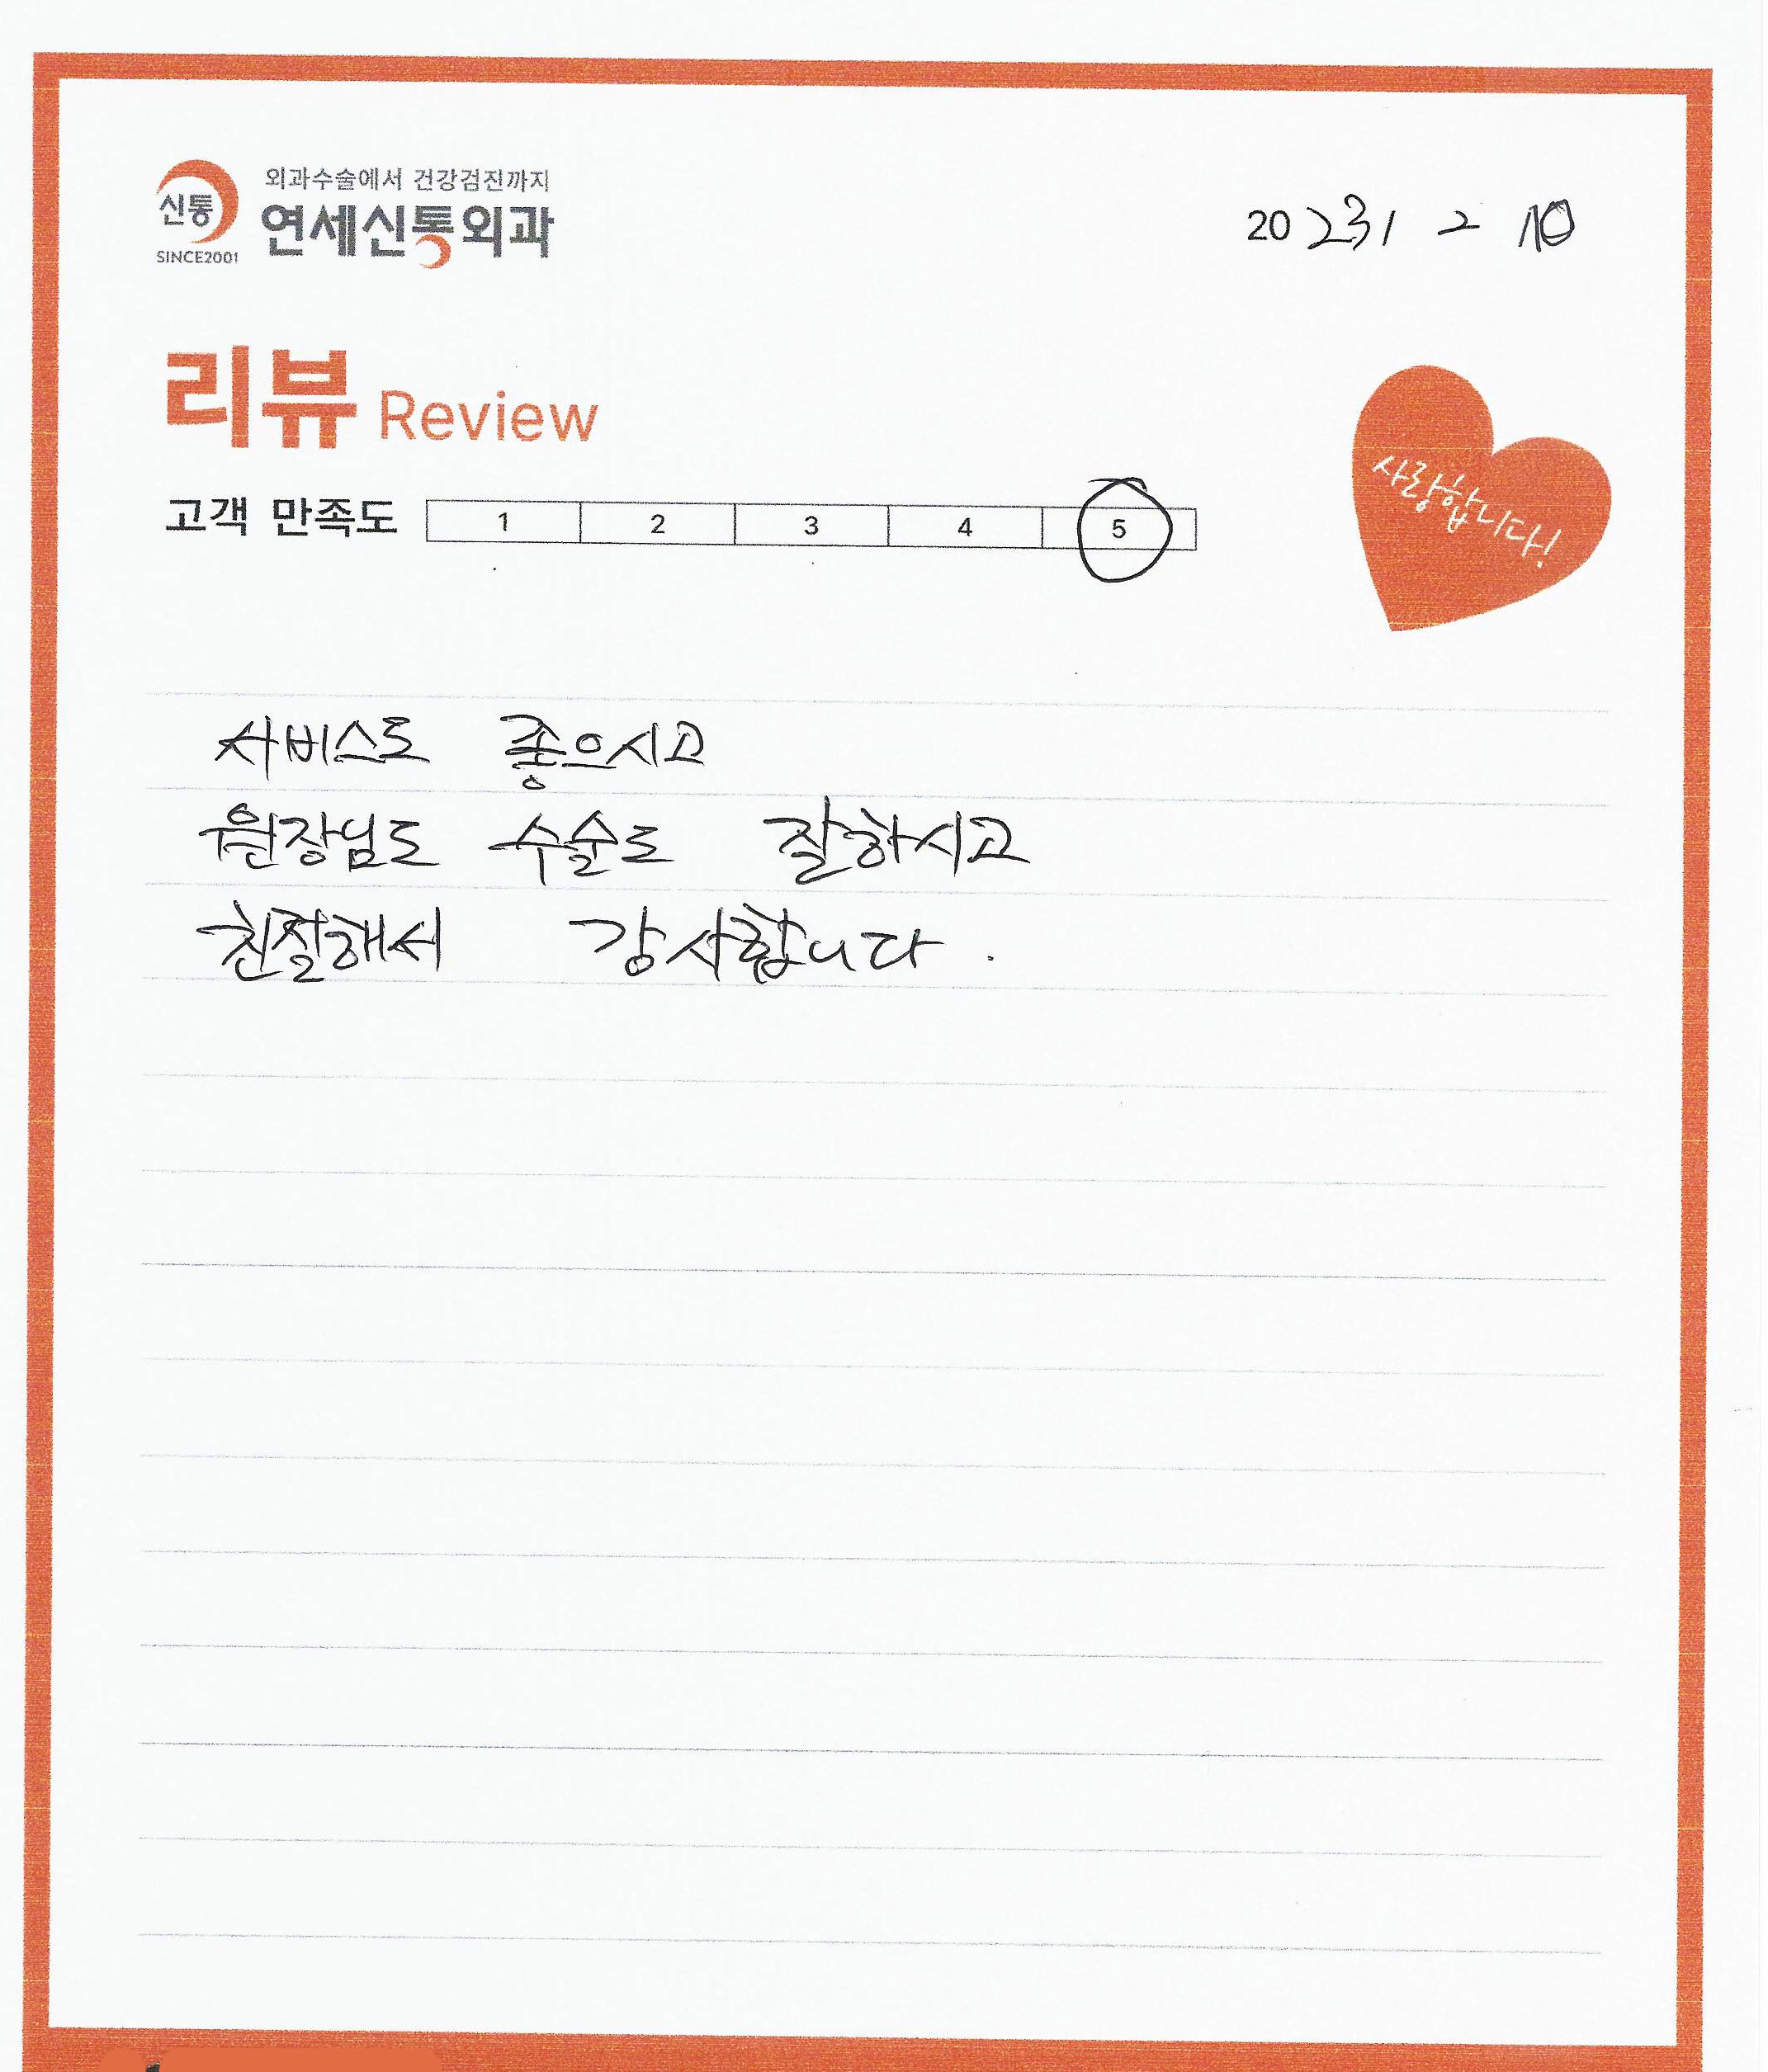 외과수술에서 건강검진까지
신통 연세신통외과
SINCE2001
20 23 / 2 10
리뷰 Review
사랑합니다!
고객 만족도 1 2 3 4 5
서비스도 좋으시고
원장님도 수술도 잘하시고
친절해서 감사합니다.